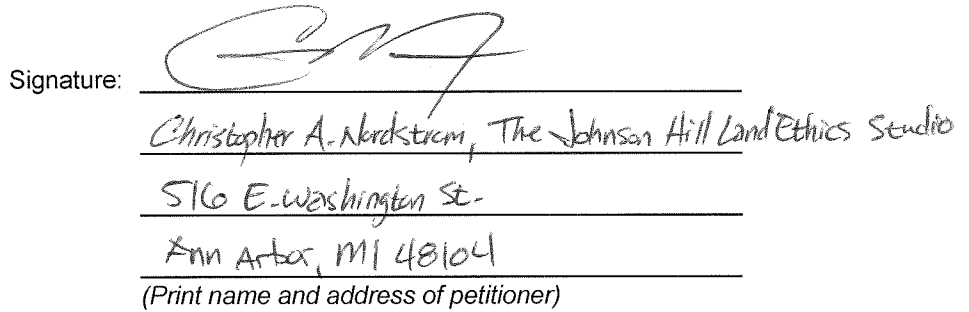 Signature:
Christopher A. Nordstrom, The Johnson Hill Land Ethics Studio
516 E. Washington St.
Ann Arbor, MI 48104
(Print name and address of petitioner)